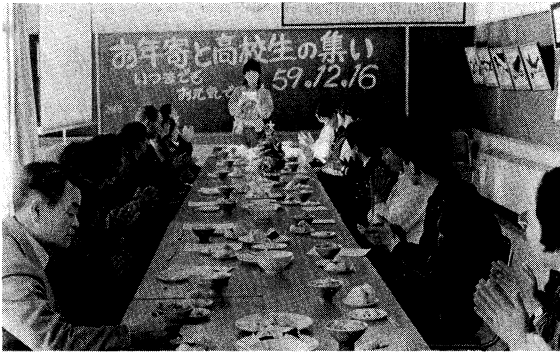 お年寄と高校生の集い
いつまでも
お元気で
59.12.16